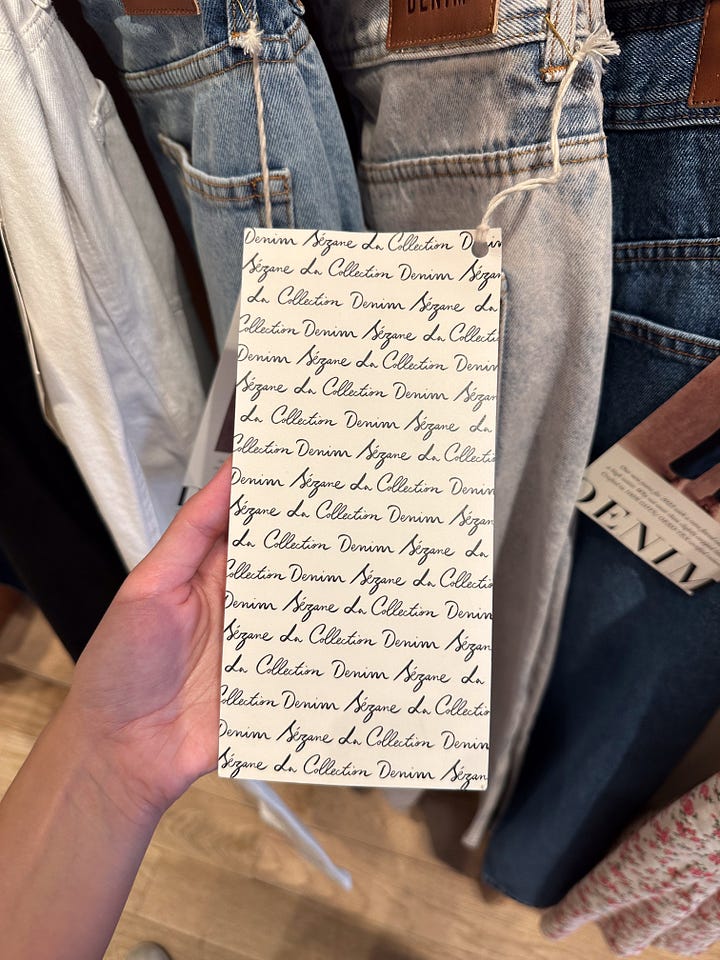 DENIM
Denim Sézane La Collection Denim
Sézane La Collection Denim Sézan
La Collection Denim Sézane La
Collection Denim Sézane La Collecti
Denim Sézane La Collection Denim
Sézane La Collection Denim Sézan
La Collection Denim Sézane La
Collection Denim Sézane La Collecti
Denim Sézane La Collection Denim
Sézane La Collection Denim Sézan
La Collection Denim Sézane La
Collection Denim Sézane La Collectio
Denim Sézane La Collection Denim
Sézane La Collection Denim Sézan
La Collection Denim Sézane La
Collection Denim Sézane La Collectio
Denim Sézane La Collection Denim
Sézane La Collection Denim Sézan
DENIM